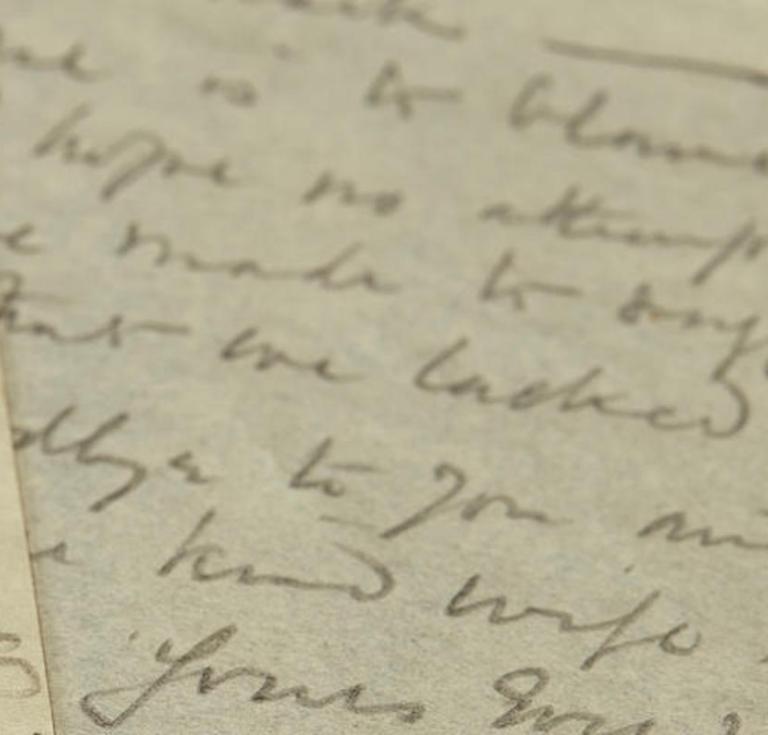 is to blame
hope no attemp
made to sug
that we lacked
dbye to you an
kind wife
Yours Ever